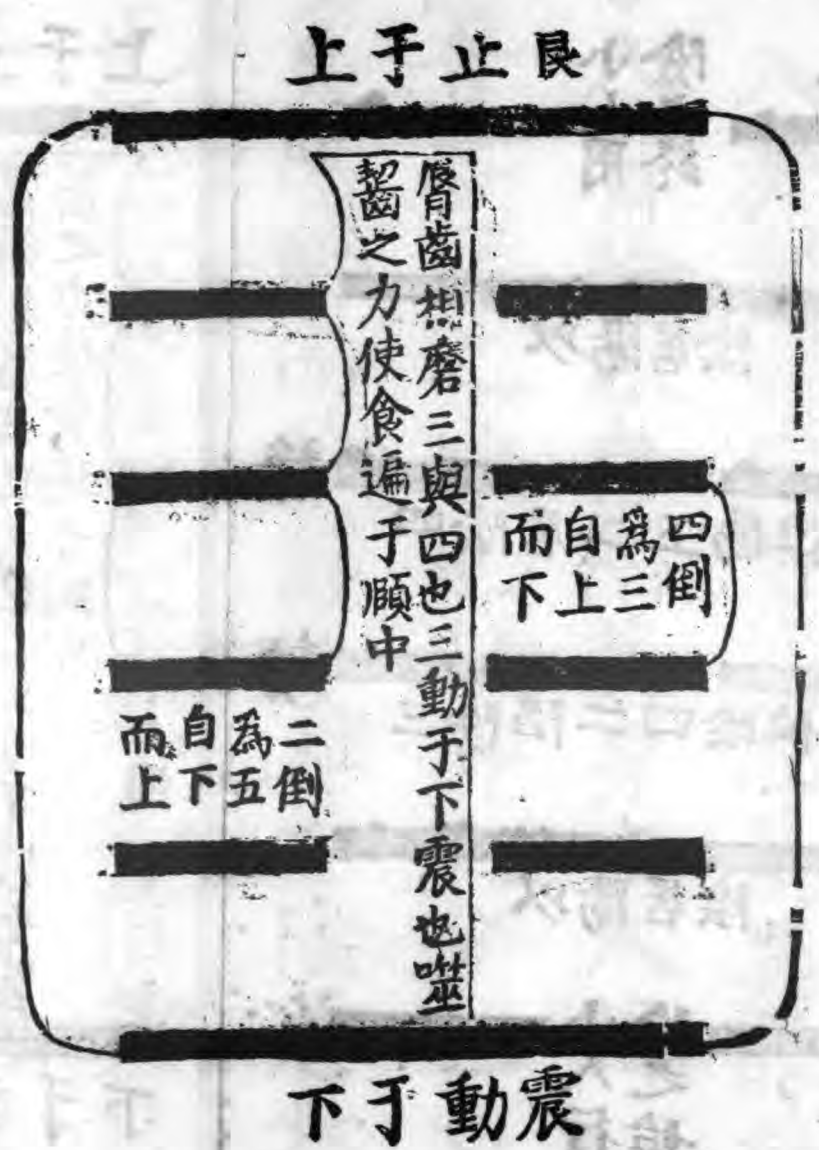 艮止于上
脣齒想磨三與四也三動于下震也噬
齧之力使食遍于頤中
四倒
為三
自上
而下
二倒
為五
自下
而上
震動于下